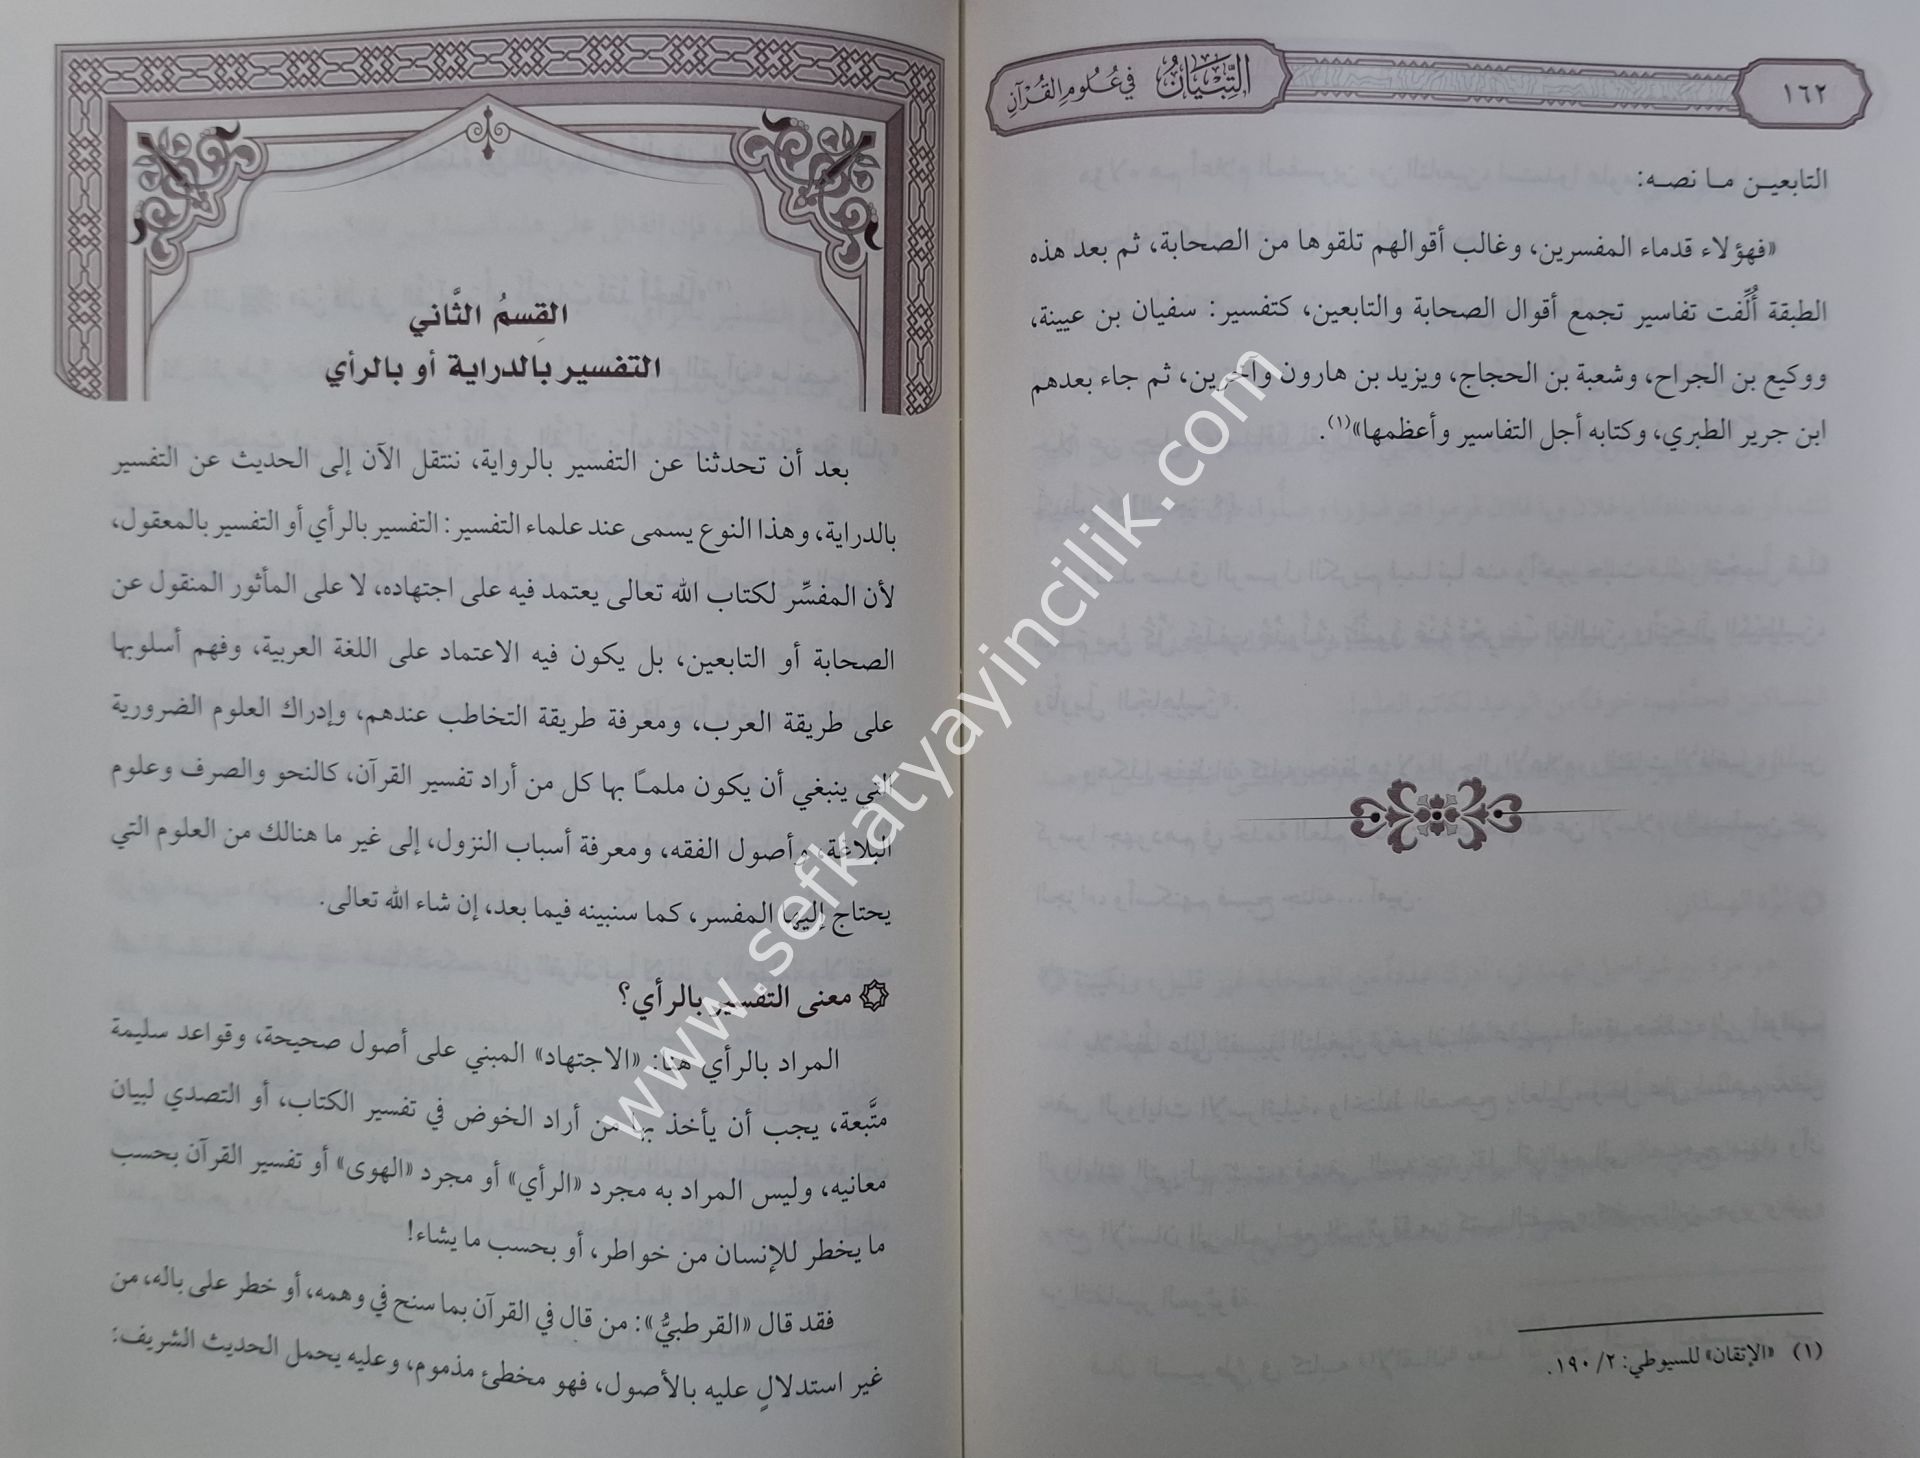 ١٦٢
التِّبْيَانُ في عُلُومِ القُرْآنِ
التابعيـن مـا نصـه:
«فهؤلاء قدماء المفسرين، وغالب أقوالهم تلقوها من الصحابة، ثم بعد هذه
الطبقة أُلِّفت تفاسير تجمع أقوال الصحابة والتابعين، كتفسير: سفيان بن عيينة،
ووكيع بن الجراح، وشعبة بن الحجاج، ويزيد بن هارون وآخرين، ثم جاء بعدهم
ابن جرير الطبري، وكتابه أجل التفاسير وأعظمها»(١).
(١) «الإتقان» للسيوطي: ٢/ ١٩٠.
القِسمُ الثَّاني
التفسير بالدراية أو بالرأي
بعد أن تحدثنا عن التفسير بالرواية، ننتقل الآن إلى الحديث عن التفسير
بالدراية، وهذا النوع يسمى عند علماء التفسير: التفسير بالرأي أو التفسير بالمعقول،
لأن المفسِّر لكتاب الله تعالى يعتمد فيه على اجتهاده، لا على المأثور المنقول عن
الصحابة أو التابعين، بل يكون فيه الاعتماد على اللغة العربية، وفهم أسلوبها
على طريقة العرب، ومعرفة طريقة التخاطب عندهم، وإدراك العلوم الضرورية
التي ينبغي أن يكون ملمـا بها كل من أراد تفسير القرآن، كالنحو والصرف وعلوم
البلاغة، وأصول الفقه، ومعرفة أسباب النزول، إلى غير ما هنالك من العلوم التي
يحتاج إليها المفسر، كما سنبينه فيما بعد، إن شاء الله تعالى.
معنى التفسير بالرأي؟
المراد بالرأي هنا: «الاجتهاد» المبني على أصول صحيحة، وقواعد سليمة
متَّبعة، يجب أن يأخذ بها من أراد الخوض في تفسير الكتاب، أو التصدي لبيان
معانيه، وليس المراد به مجرد «الرأي» أو مجرد «الهوى» أو تفسير القرآن بحسب
ما يخطر للإنسان من خواطر، أو بحسب ما يشاء!
فقد قال «القرطبيُّ»: من قال في القرآن بما سنح في وهمه، أو خطر على باله، من
غير استدلالٍ عليه بالأصول، فهو مخطئ مذموم، وعليه يحمل الحديث الشريف:
www.sefkatyayincilik.com